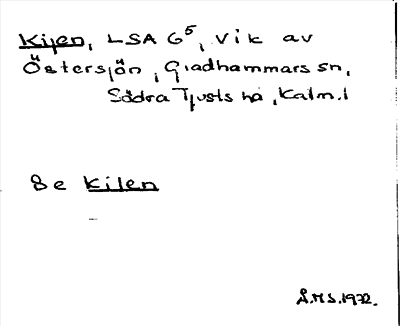 Kijen, LSA G⁵, Vik av
Östersjön, Gladhammars sn,
Södra Tjusts hd, Kalm.l
Se Kilen
Å.M.S.1972.